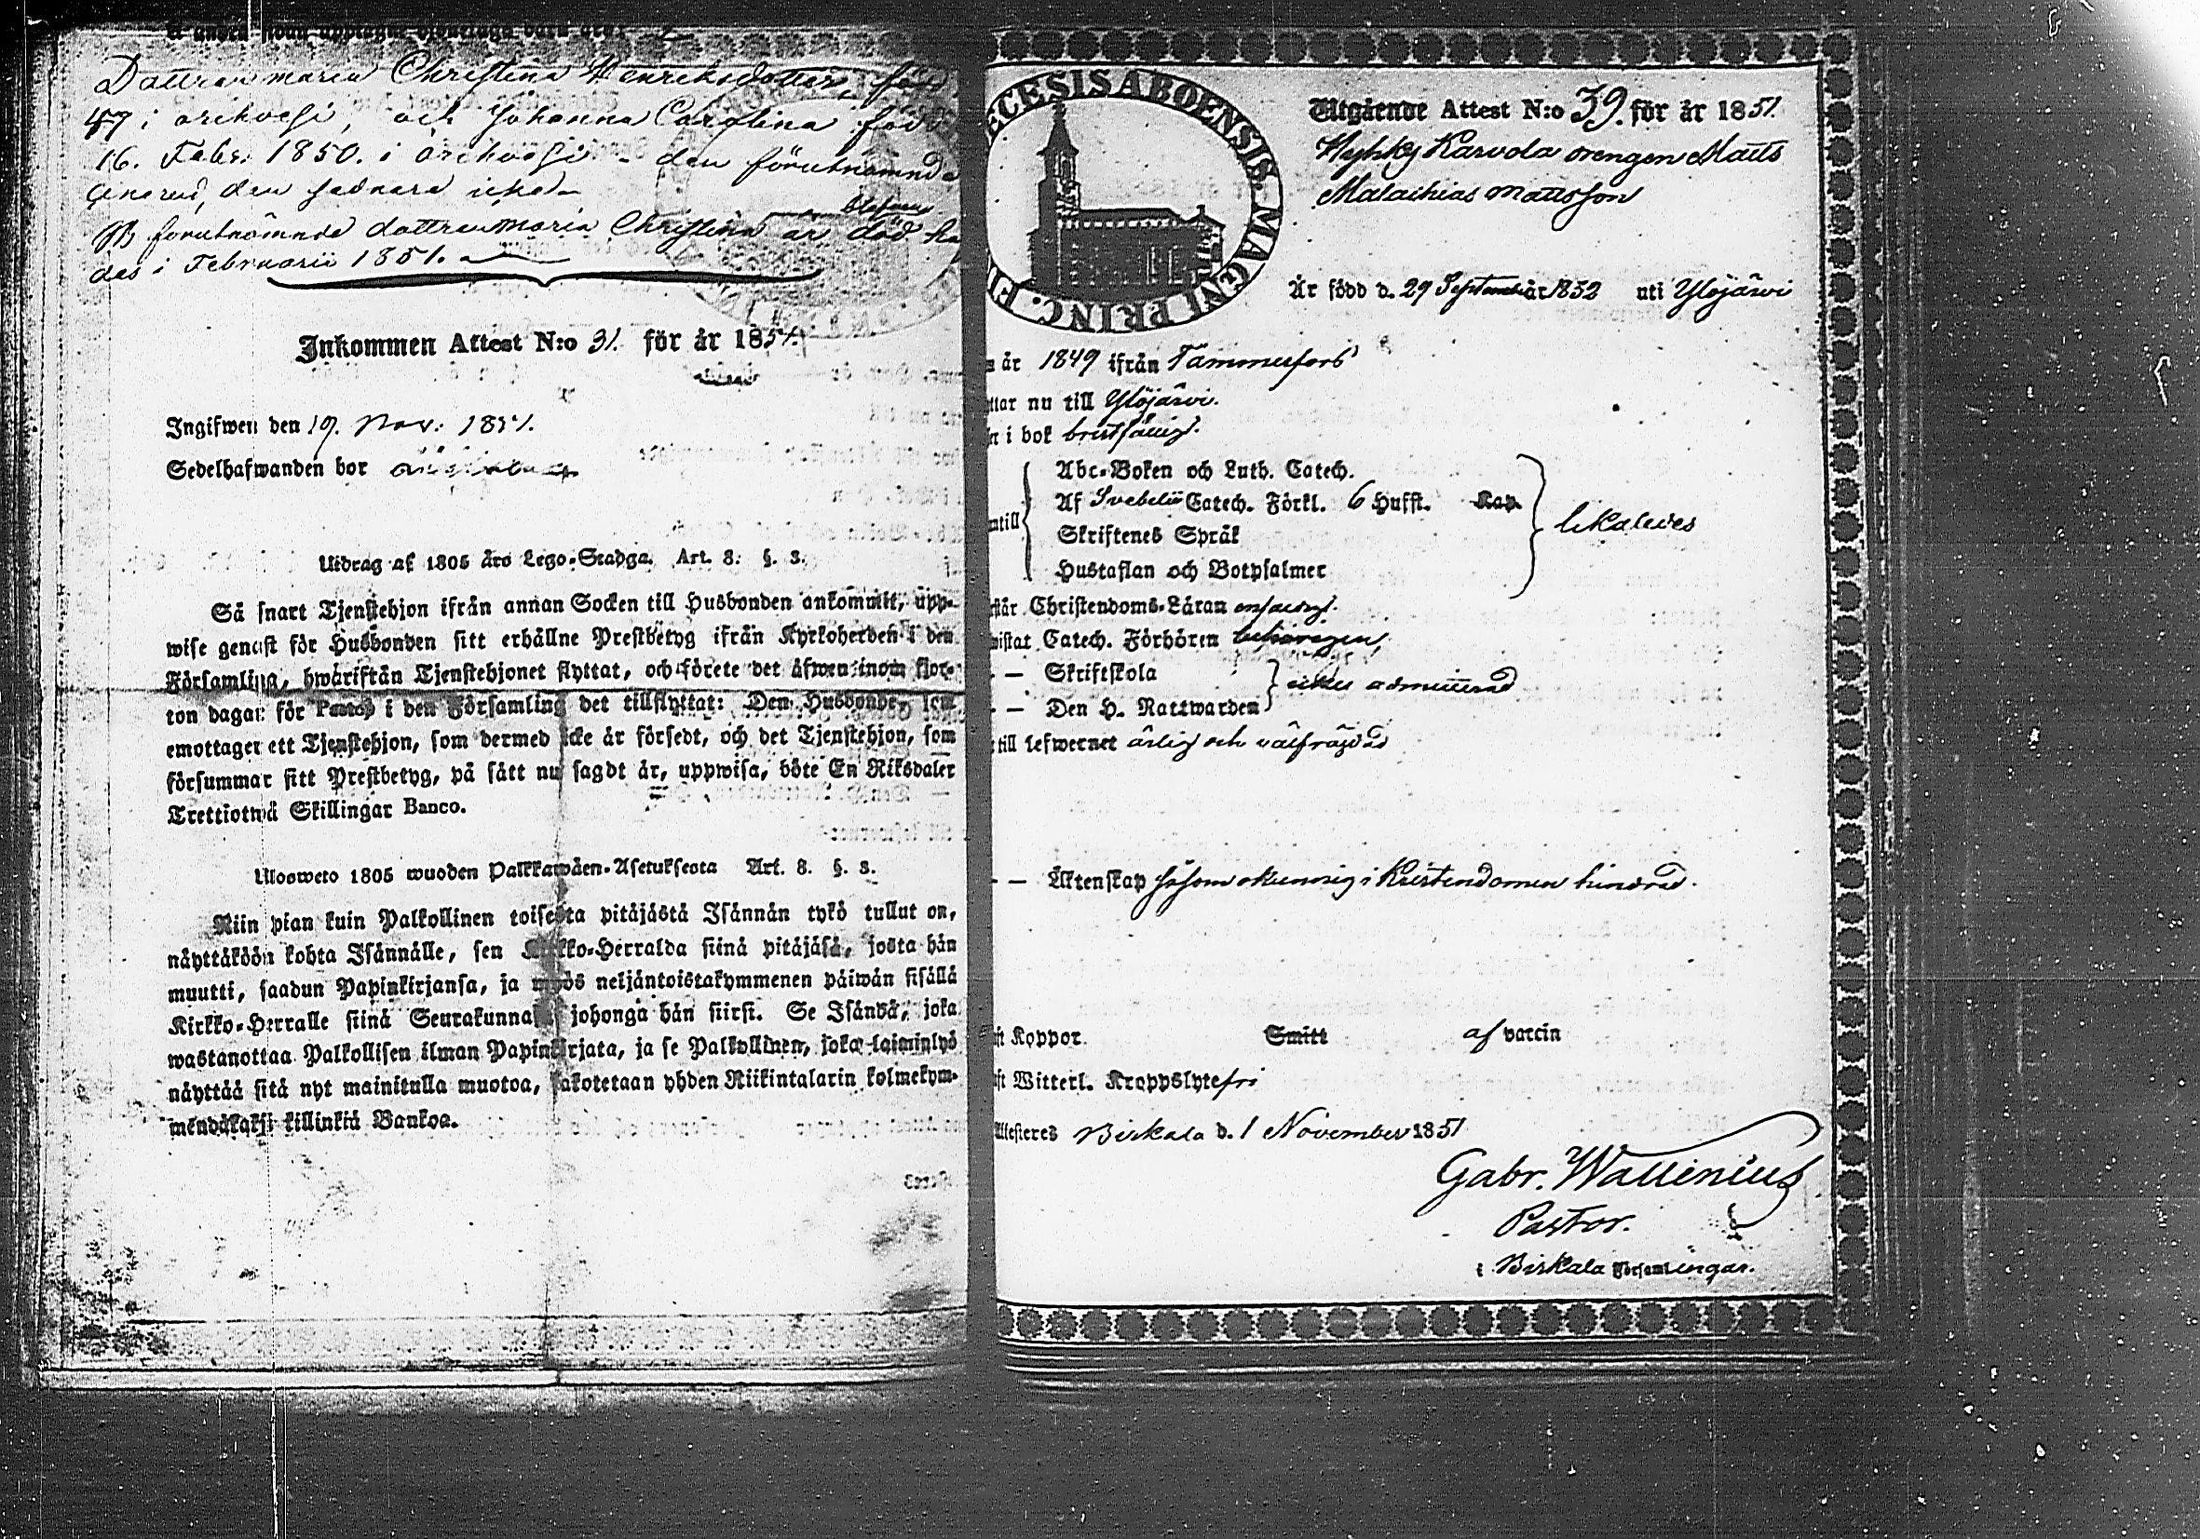 å andra sidan upptagne
Dottren maria Christina Henriksdotter, född
47 i orihvesi, och Johanna Carolina född
16. Febr. 1850. i orihvesi - den förutnämnde
den sednare icke
förutnämnde dottren Maria Christina är död
des i Februarii 1851.
Inkommen Attest N:o 31. för år 1851.
Ingifwen den 19. Nov. 1851.
Sedelhafwanden bor
Utdrag af 1805 års Lego-Stadga. Art. 8. §. 3.
Så snart Tjenstehjon ifrån annan Socken till Husbonden ankommit, upp-
wise genast för Husbonden sitt erhållne Prestbetyg ifrån Kyrkoherden i den
Församling, hwarifrån Tjenstehjonet flyttat, och förete det äfwen inom fjor-
ton dagar för Pastor i den Församling det tillflyttat: Den Husbonde, som
emottager ett Tjenstehjon, som dermed icke är försedt, och det Tjenstehjon, som
försummar sitt Prestbetyg, på sätt nu sagdt är, uppwisa, böte En Riksdaler
Trettiotwå Skillingar Banco.
Ulosweto 1805 wuoden Palkkawäen-Asetuksesta Art. 8. §. 3.
Niin pian kuin Palkollinen toisesta pitäjästä Isännän tykö tullut on,
näyttäköön kohta Isännälle, sen Kirkko-Herralda siinä pitäjäsä, josta hän
muutti, saadun Papinkirjansa, ja myös neljäntoistakymmenen päiwän sisällä
Kirkko-Herralle siinä Seurakunnasa johonga hän siirsi. Se Isändä, joka
wastanottaa Palkollisen ilman Papinkirjata, ja se Palkollinen, joka laiminlyö
näyttää sitä nyt mainitulla muotoa, sakotetaan yhden Riikintalarin kolmekym-
mendäkaksi killinkiä Bankoa.
ECESIS ABOENSIS. MAGNI PRINC. FI
Utgående Attest N:o 39. för år 1851.
Hyhky Karvola drengen Matts
Malachias Mattsson
Är född d. 29 September år 1832 uti Ylöjärvi
år 1849 ifrån Tammerfors
ttar nu till Ylöjärvi.
i bok bristfälligt.
Abc-Boken och Luth. Catech.
Af Svebelii Catech. Förkl. 6 Hufst. Kap.
ntill
likaledes
Skriftenes Språk
Hustaflan och Botpsalmer
står Christendoms-Läran enfaldigt.
wistat Catech. Förhören behörigen
- - Skriftskola
icke admitterad
- - Den H. Nattwarden
till lefwernet ärlig och välfräjdad
- - Äktenskap såsom okunnig i Kristendomen hindrad.
ft Koppor Smitt af vaccin
ft Witterl. Kroppslyte fri
Attesteres Birkala d. 1 November 1851
Gabr. Wallenius
Pastor.
i Birkala Församlingar.